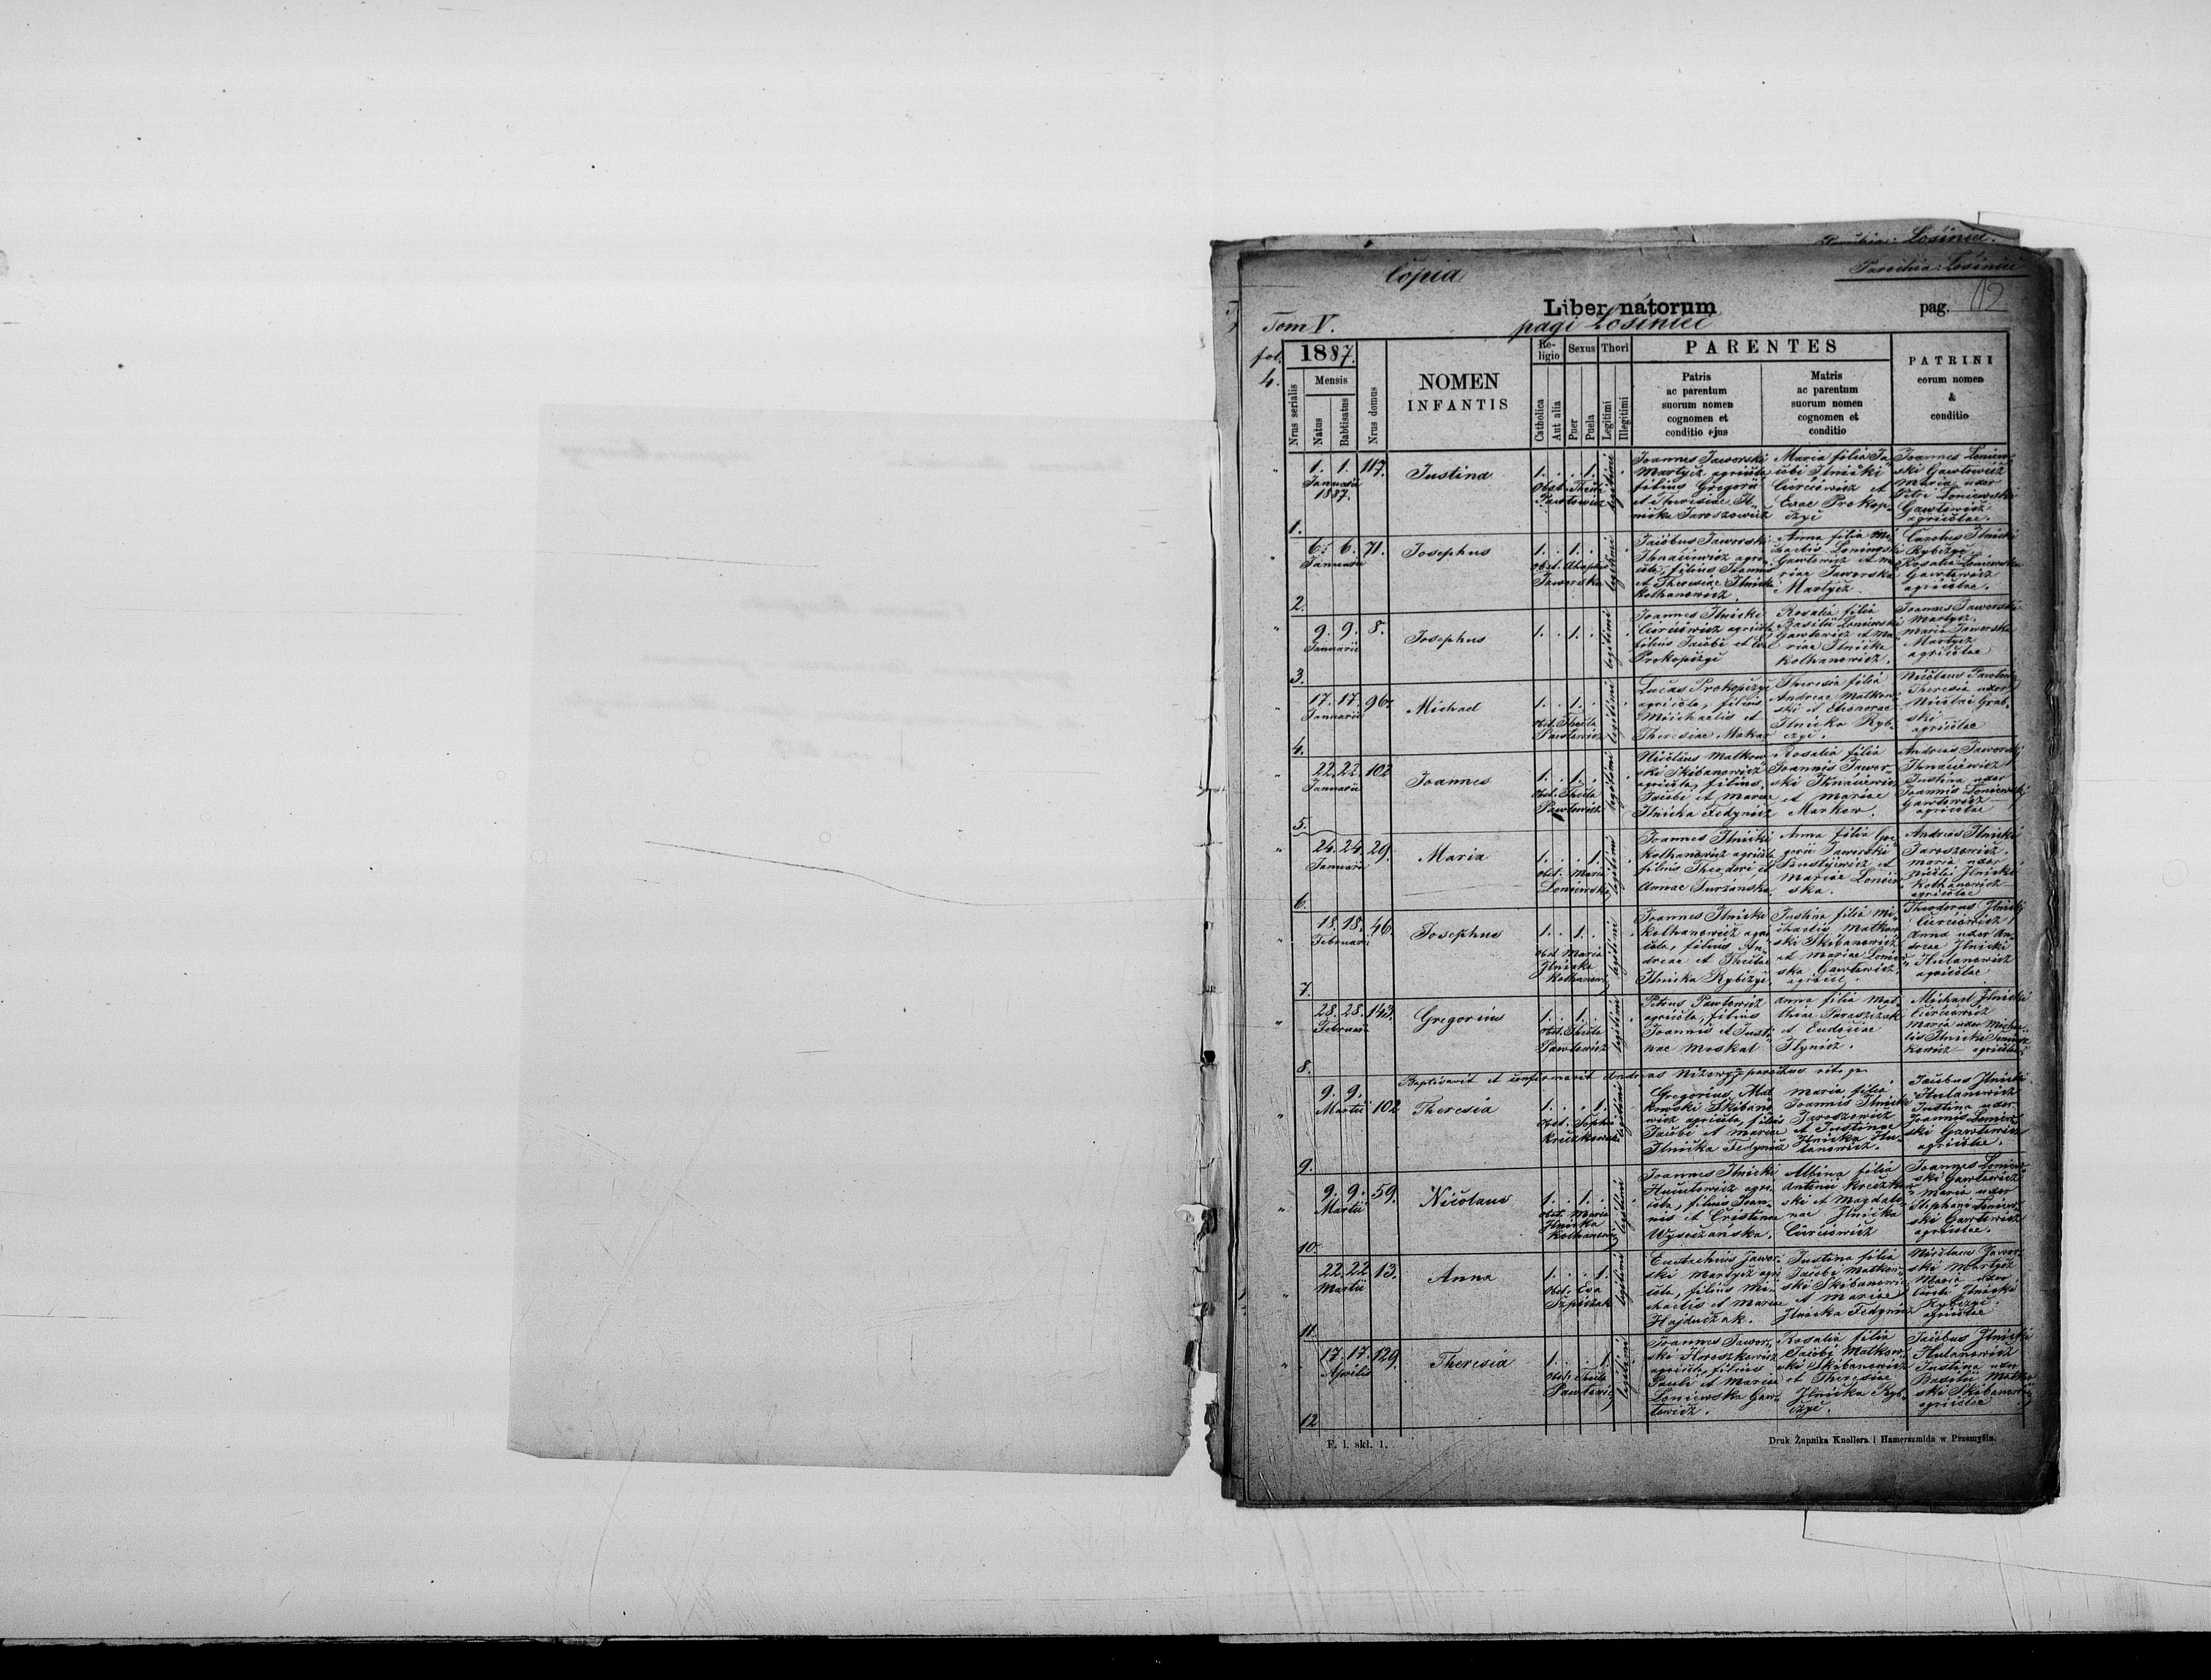 Parochia: Łosiniec.
Copia
Parochia: Łosiniec
Liber natorum
pag. 12
Tom V.
pagi Łosiniec
fol. 4.
1887.
Nrus serialis
Mensis
Natus
Babtisatus
Nrus domus
NOMEN
INFANTIS
Re-
ligio
Catholica
Aut alia
Sexus
Puer
Puela
Thori
Legitimi
Illegitimi
PARENTES
Patris
ac parentum
suorum nomen
cognomen et
conditio ejus
Matris
ac parentum
suorum nomen
cognomen et
conditio
PATRINI
eorum nomen
&
conditio
1.
1. 1. 117.
Januarii
1887.
Justina
1. . . 1.
Obst. Thecla
Pawłowicz
legitimi
Joannes Jaworski
Martycz agricola
filius Gregorii
et Theresiae Il-
nicka Jaroszowicz
Maria filia Ja-
cobi Ilnicki
Curciowicz et
Evae Prokop-
czyc
Joannes Łoniew-
ski Gawłowicz
Maria uxor
Petri Łoniewski
Gawłowicz
agricolae.
2.
6. 6. 71.
Januarii
Josephus
1. . 1. .
Obst.
Jaworska
legitimi
Jacobus Jaworski
Ihnaciewicz agri-
cola, filius Joannis
et Theresiae Ilnicka
Kolhanowicz.
Anna filia Mi-
chaelis Łoniewski
Gawłowicz et Ma-
riae Jaworska
Martycz.
Carolus Ilnicki
Rybczyc
Rosalia Łoniewska
Gawłowicz
agricolae.
3.
9. 9. 8.
Januarii
Josephus
1. . 1. .
legitimi
Joannes Ilnicki
Curciowicz agricola
filius Jacobi et Evae
Prokopczyc
Rosalia filia
Basilii Łoniewski
Gawłowicz et Ma-
riae Ilnicka
Kolhanowicz.
Joannes Jaworski
Martycz.
Maria Jaworska
Martycz
agricolae
4.
17. 17. 96.
Januarii
Michael
1. . 1. .
Obst. Thecla
Pawłowicz
legitimi
Lucas Prokopczyc
agricola, filius
Michaelis et
Theresiae Makar
Theresia filia
Andreae Matkow-
ski et Eleonorae
Ilnicka Ryb-
czyc.
Nicolaus Pawłowicz
Theresia uxor
Nicolai Grab-
ski
agricolae
5.
22. 22. 102
Januarii
Joannes
1. . 1. .
Obst. Thecla
Pawłowicz
legitimi
Nicolaus Matkow-
ski Skibanowicz
agricola, filius
Jacobi et Mariae
Ilnicka Fedynicz
Rosalia filia
Joannis Jawor-
ski Ihnaciewicz
et Mariae
Markow.
Andreas Jaworski
Ihnaciewicz
Justina uxor
Joannis Łoniewski
Gawłowicz
agricolae
6.
24. 24. 29.
Januarii
Maria
1. . . 1.
Obst. Maria
Łoniewska
legitimi
Joannes Ilnicki
Kolhanowicz agricola
filius Theodori et
Annae Turzanska
Anna filia Gre-
gorii Jaworski
et
Mariae Łoniew-
ska.
Andreas Ilnicki
Jaroszowicz.
Maria uxor
Nicolai Ilnicki
Kolhanowicz
agricolae
7.
18. 18. 46.
Februarii
Josephus
1. . 1. .
Obst. Maria
Ilnicka
Kolhanowicz
legitimi
Joannes Ilnicki
Kolhanowicz agri-
cola, filius An-
dreae et Theclae
Ilnicka Rybczyc
Justina filia Mi-
chaelis Matkow-
ski Skibanowicz
et Mariae Łoniew-
ska Gawłowicz,
Theodorus Ilnicki
Curciowicz
Anna uxor An-
dreae Ilnicki
Hulanowicz
agricolae
8.
28. 28. 143.
Februarii
Gregorius
1. . 1. .
Obst. Thecla
Pawłowicz
legitimi
Petrus Pawłowicz
agricola, filius
Joannis et Justi-
nae Moskal
Anna filia Mat-
thiae Paraszczak
et Eudociae
Ilynicz.
Michael Ilnicki
Curciowicz
Maria uxor Micha-
elis Ilnicki
agricolae
Baptisavit et confirmavit Andreas Nizowy parochus
9.
9. 9.
Martii 102
Theresia
1. . . 1.
Obst. Sophia
Kreczkowska
legitimi
Gregorius Mat-
kowski Skibano-
wicz agricola, filius
Jacobi et Mariae
Ilnicka Fedynicz
Maria filia
Joannis Ilnicki
Jaroszowicz
et Justinae
Ilnicka Hu-
lanowicz.
Jacobus Ilnicki
Hulanowicz
Justina uxor
Joannis Łoniew-
ski Gawłowicz
agricolae.
10.
9. 9. 59.
Martii
Nicolaus
1. . 1. .
Obst. Maria
Ilnicka
Kolhanowicz
legitimi
Joannes Ilnicki
agri-
cola, filius Joan-
nis et Cristinae
Wysoczanska.
Albina filia
Antonii Kreczkow-
ski et Magdale-
nae Ilnicka
Curciowicz
Joannes Łoniew-
ski Gawłowicz
Maria uxor
Stephani Łoniew-
ski Gawłowicz
agricolae.
11.
22. 22. 13.
Martii
Anna
1. . . 1.
Obst. Eva
legitimi
Eustachius Jawor-
ski Martycz agri-
cola, filius Mi-
chaelis et Mariae
Hajduczak.
Justina filia
Jacobi Matkow-
ski Skibanowicz
et Mariae
Ilnicka Fedynicz
Nicolaus Jawor-
ski Martycz
Maria uxor
Caroli Ilnicki
Rybczyc.
agricolae
12
17. 17. 129.
Aprilis
Theresia
1. . . 1.
Obst. Thecla
Pawłowicz
legitimi
Joannes Jawor-
ski
agricola, filius
Pauli et Mariae
Łoniewska Gaw-
łowicz.
Rosalia filia
Jacobi Matkow-
ski Skibanowicz
et Theresiae
Ilnicka Ryb-
czyc.
Jacobus Ilnicki
Hulanowicz
Justina uxor
Basilii Matkow-
ski Skibanowicz
agricolae
F. l. skł. 1.
Druk Żupnika Knollera i Hamerszmida w Przemyślu.